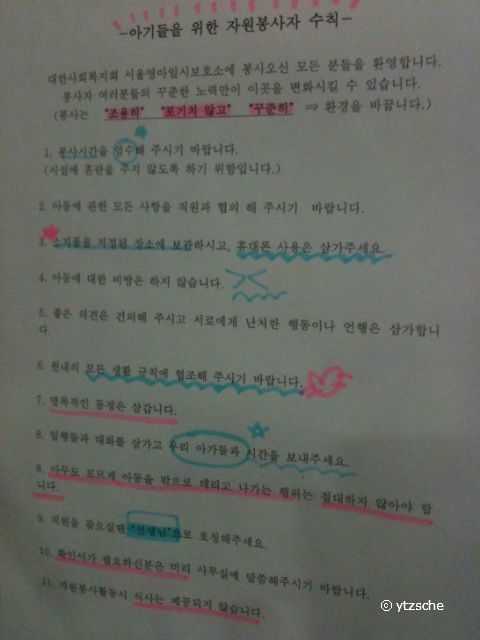 -아기들을 위한 자원봉사자 수칙-
대한사회복지회 서울영아일시보호소에 봉사오신 모든 분들을 환영합니다.
봉사자 여러분들의 꾸준한 노력만이 이곳을 변화시킬 수 있습니다.
(봉사는 "조용히" "포기치 않고" "꾸준히" ⇒ 환경을 바꿉니다.)
1. 봉사시간을 엄수해 주시기 바랍니다.
(시설에 혼란을 주지 않도록 하기 위함입니다.)
2. 아동에 관한 모든 사항을 직원과 협의 해 주시기 바랍니다.
3. 소지품을 지정된 장소에 보관하시고, 휴대폰 사용은 삼가주세요.
4. 아동에 대한 비방은 하지 않습니다.
5. 좋은 의견은 건의해 주시고 서로에게 난처한 행동이나 언행은 삼가합니
다.
6. 원내의 모든 생활 규칙에 협조해 주시기 바랍니다.
7. 맹목적인 동정은 삼갑니다.
8. 일행들과 대화를 삼가고 우리 아가들과 시간을 보내주세요.
8. 아무도 모르게 아동을 밖으로 데리고 나가는 행위는 절대하지 않아야 합
니다.
9. 직원을 찾으실땐 "선생님"으로 호칭해주세요.
10. 확인서가 필요하신분은 미리 사무실에 말씀해주시기 바랍니다.
11. 자원봉사활동시 식사는 제공되지 않습니다.
© ytzsche